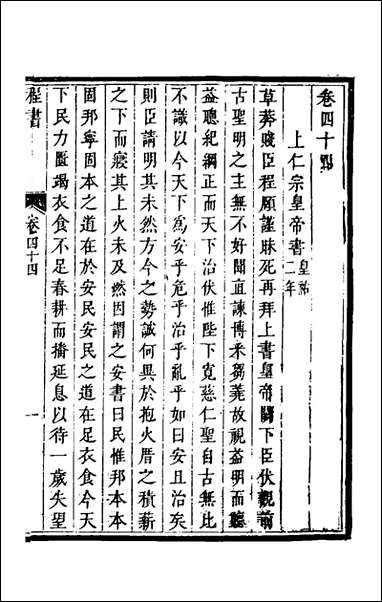 卷四十
上仁宗皇帝書 皇祐二年
草莽賤臣程頤謹昧死再拜上書皇帝闕下臣伏觀前
古聖明之主無不好聞直諫博釆芻蕘故視益明而聽
益聰紀綱正而天下治伏惟陛下寬慈仁聖自古無比
不識以今天下爲安乎危乎治乎亂乎如曰安且治矣
則臣請明其未然方今之勢誠何異於抱火厝之積薪
之下而寢其上火未及燃因謂之安書曰民惟邦本本
固邦寧固本之道在於安民安民之道在足衣食今天
下民力匱竭衣食不足春耕而播延息以待一歲失望
程書 卷四十四 一